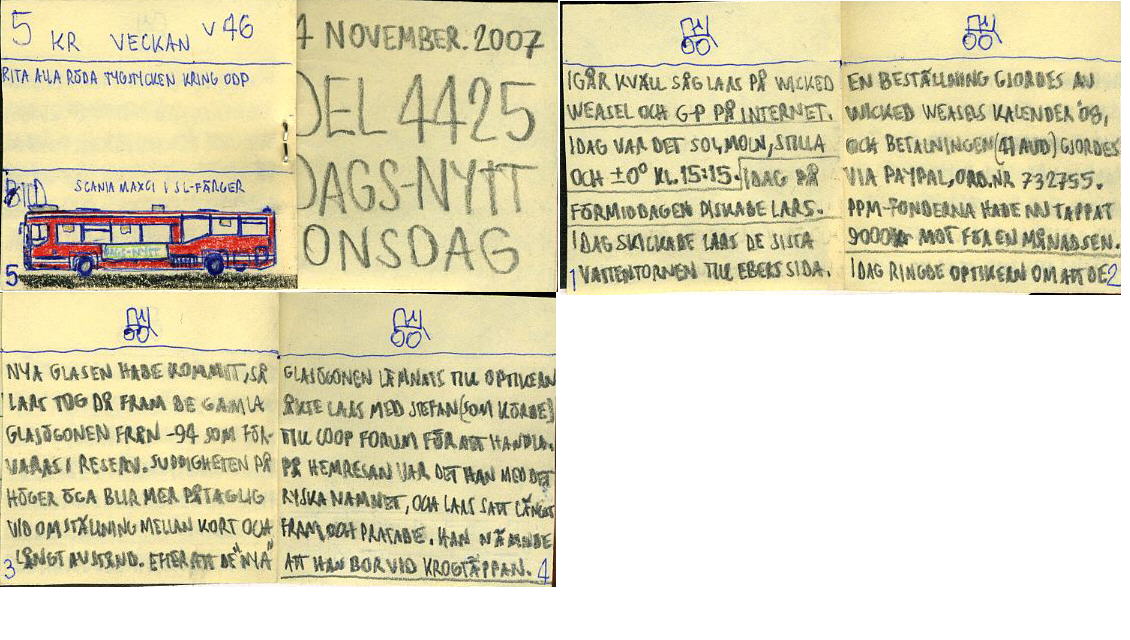 5 KR VECKAN V 46
RITA ALLA RÖDA TYGSTYCKEN KRING ODP
BILD
SCANIA MAXCI I SL-FÄRGER
DAGS-NYTT
5
4 NOVEMBER. 2007
DEL 4425
DAGS-NYTT
ONSDAG
IGÅR KVÄLL SÅG LARS PÅ WICKED
WEASEL OCH G-P PÅ INTERNET.
IDAG VAR DET SOL, MOLN, STILLA
OCH ±0° KL. 15:15. IDAG PÅ
FÖRMIDDAGEN DISKADE LARS.
IDAG SKICKADE LARS DE SISTA
VATTENTORNEN TILL EBERS SIDA.
1
EN BESTÄLLNING GJORDES AV
WICKED WEASELS KALENDER '08,
OCH BETALNINGEN (41 AUD) GJORDES
VIA PAYPAL, ORD.NR 732755.
PPM-FONDERNA HADE NU TAPPAT
9000KR MOT FÖR EN MÅNAD SEN.
IDAG RINGDE OPTIKERN OM ATT DE
2
NYA GLASEN HADE KOMMIT, SÅ
LARS TOG DÅ FRAM DE GAMLA
GLASÖGONEN FRÅN -94 SOM FÖR-
VARAS I RESERV. SUDDIGHETEN PÅ
HÖGER ÖGA BLIR MER PÅTAGLIG
VID OMSTÄLLNING MELLAN KORT OCH
LÅNGT AVSTÅND. EFTER ATT DE "NYA"
3
GLASÖGONEN LÄMNATS TILL OPTIKERN
ÅKTE LARS MED STEFAN (SOM KÖRDE)
TILL COOP FORUM FÖR ATT HANDLA.
PÅ HEMRESAN VAR DET HAN MED DET
RYSKA NAMNET, OCH LARS SATT LÄNGST
FRAM OCH PRATADE. HAN NÄMNDE
ATT HAN BOR VID KROGTÄPPAN.
4